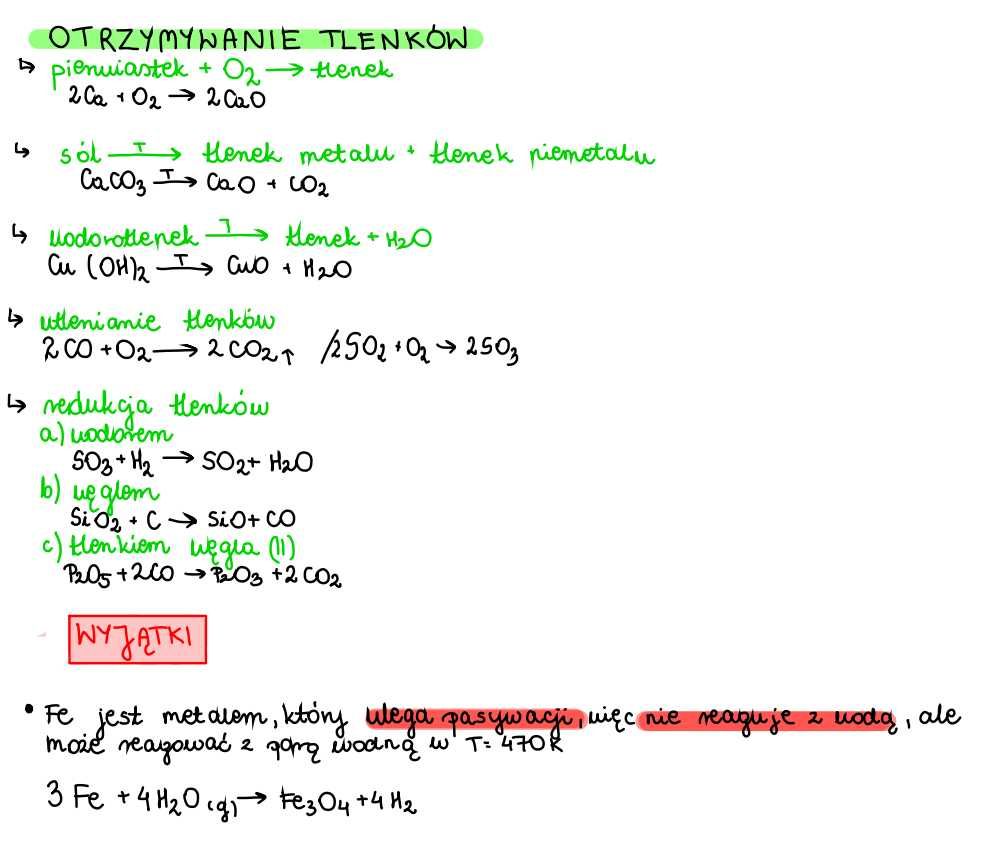 OTRZYMYWANIE TLENKÓW
↳ pierwiastek + O₂ → tlenek
2Ca + O₂ → 2CaO
↳ sól —T→ tlenek metalu + tlenek niemetalu
CaCO₃ —T→ CaO + CO₂
↳ wodorotlenek —T→ tlenek + H₂O
Cu (OH)₂ —T→ CuO + H₂O
↳ utlenianie tlenków
2CO + O₂ → 2CO₂↑ /2SO₂ + O₂ → 2SO₃
↳ redukcja tlenków
a) wodorem
SO₃ + H₂ → SO₂ + H₂O
b) węglem
SiO₂ + C → SiO + CO
c) tlenkiem węgla (II)
P₂O₅ + 2CO → P₂O₃ + 2CO₂
WYJĄTKI
• Fe jest metalem, który ulega pasywacji, więc nie reaguje z wodą, ale
może reagować z parą wodną w T= 470K
3 Fe + 4H₂O (g) → Fe₃O₄ + 4H₂